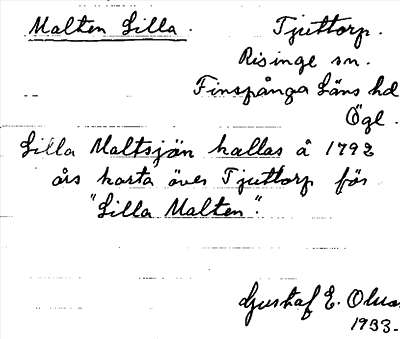 Malten Lilla. Tjuttorp.
Risinge sn.
Finspånga Läns hd
Ögl.
Lilla Maltsjön kallas å 1792
års karta över Tjuttorp för
"Lilla Malten".
Gustaf E. Olsson
1933.